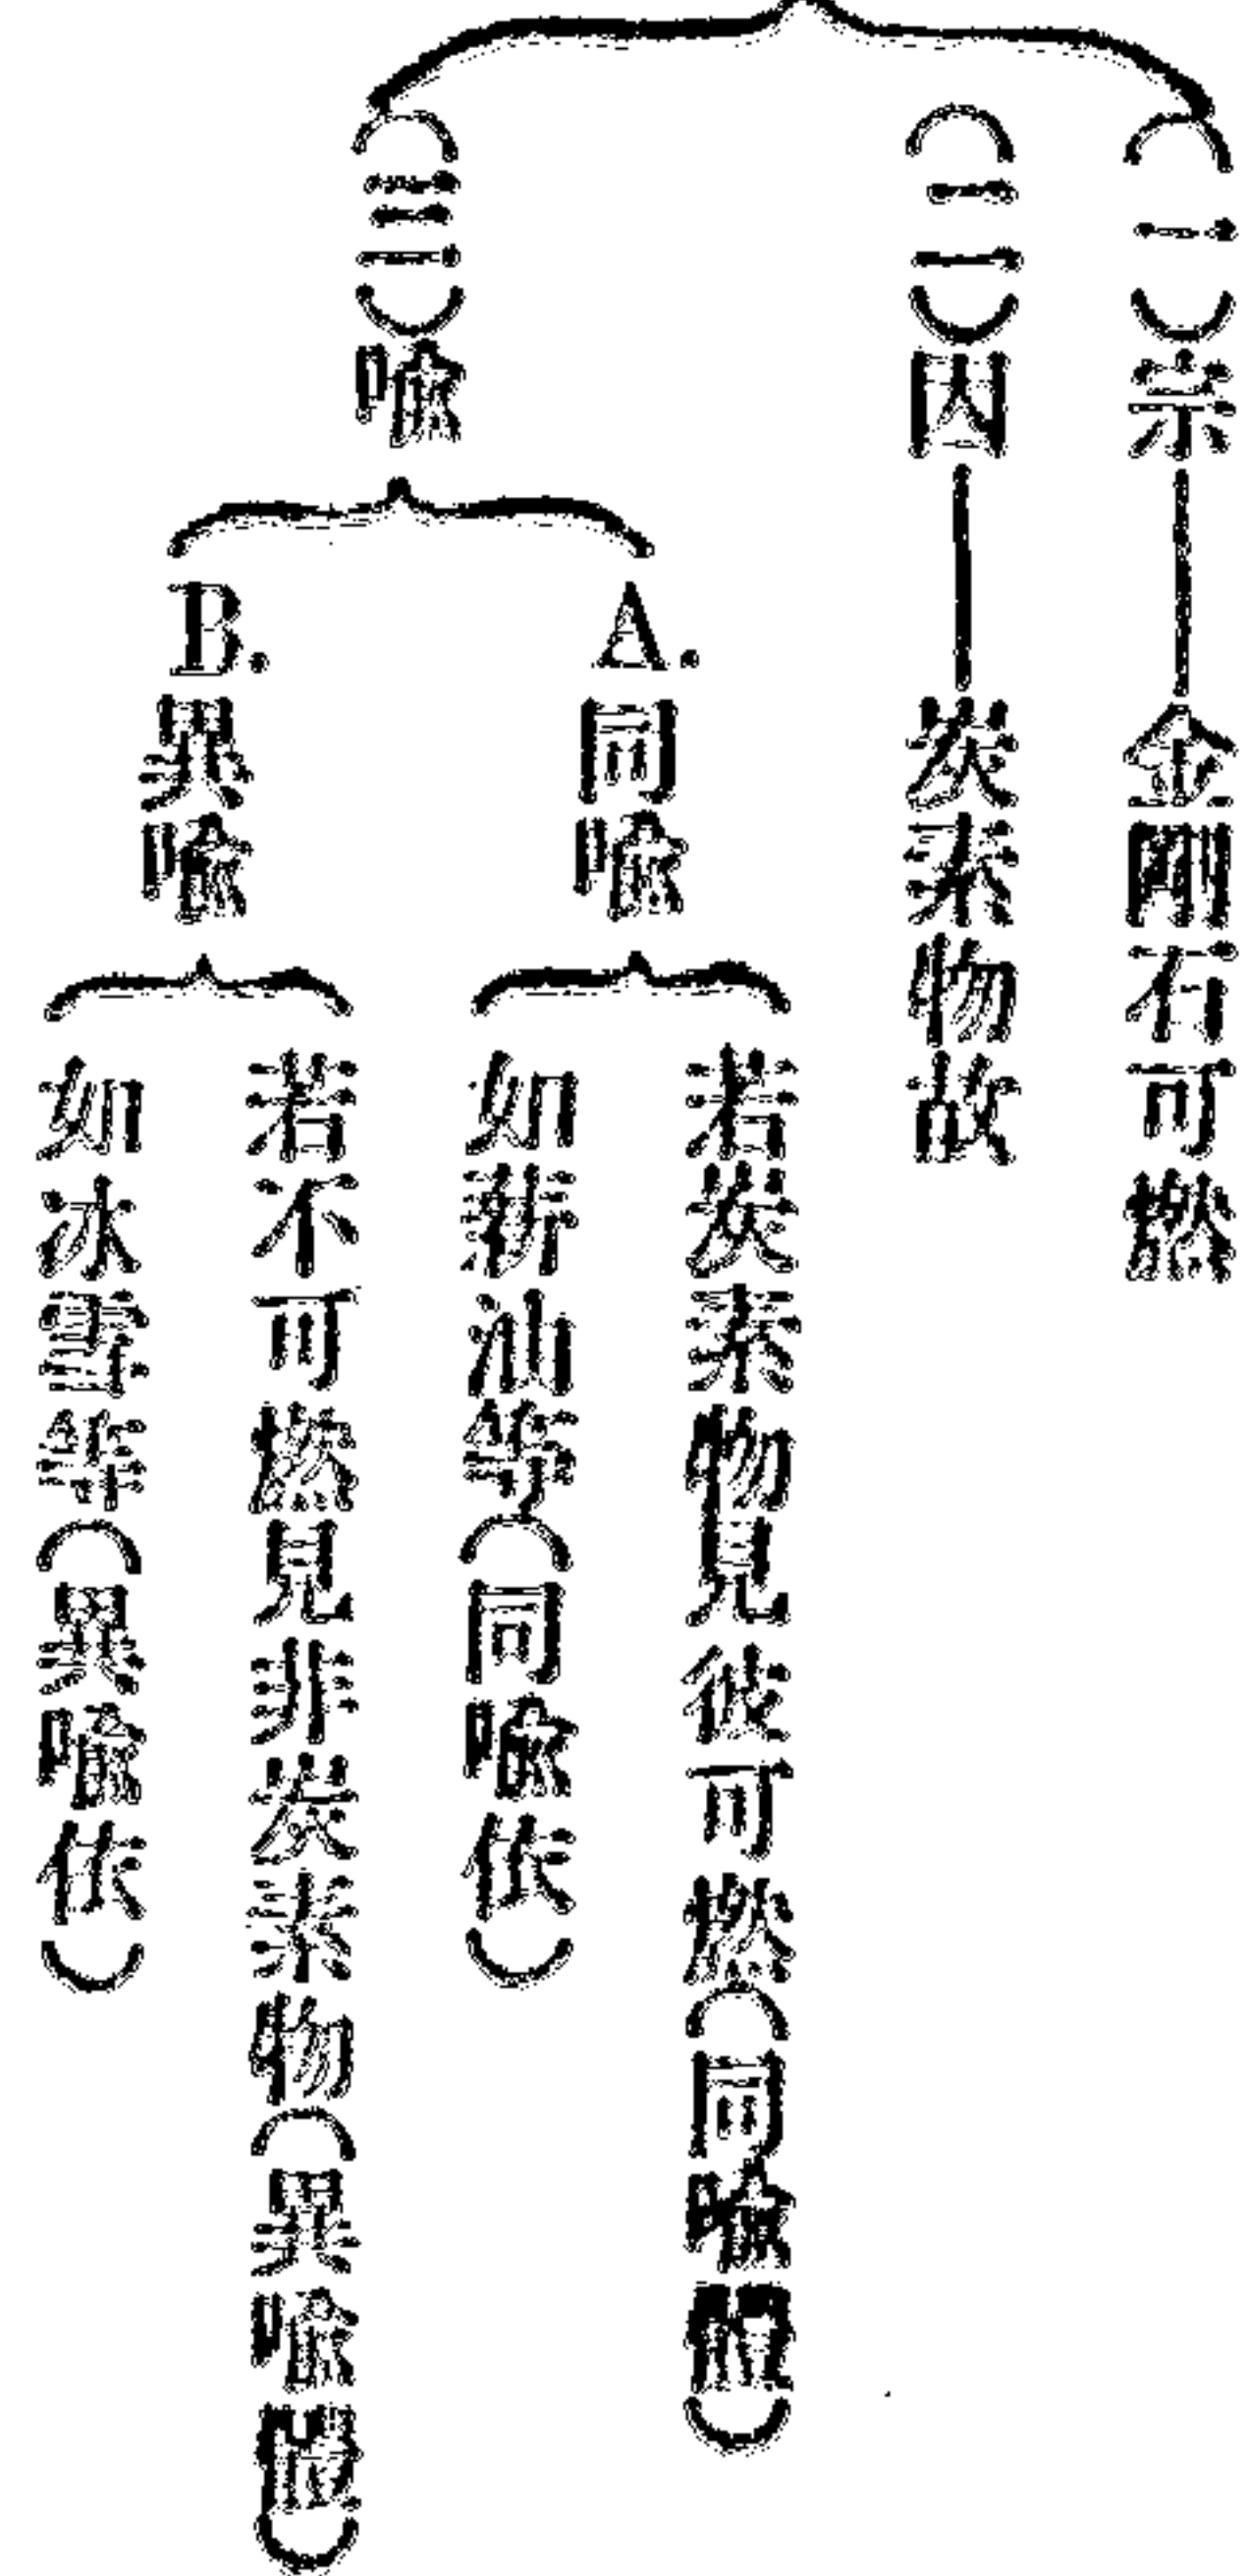 (一)宗——金剛石可燃
(二)因——炭素物故
(三)喻
A.同喻
若炭素物見彼可燃(同喻體)
如薪油等(同喻依)
B.異喻
若不可燃見非炭素物(異喻體)
如冰雪等(異喻依)